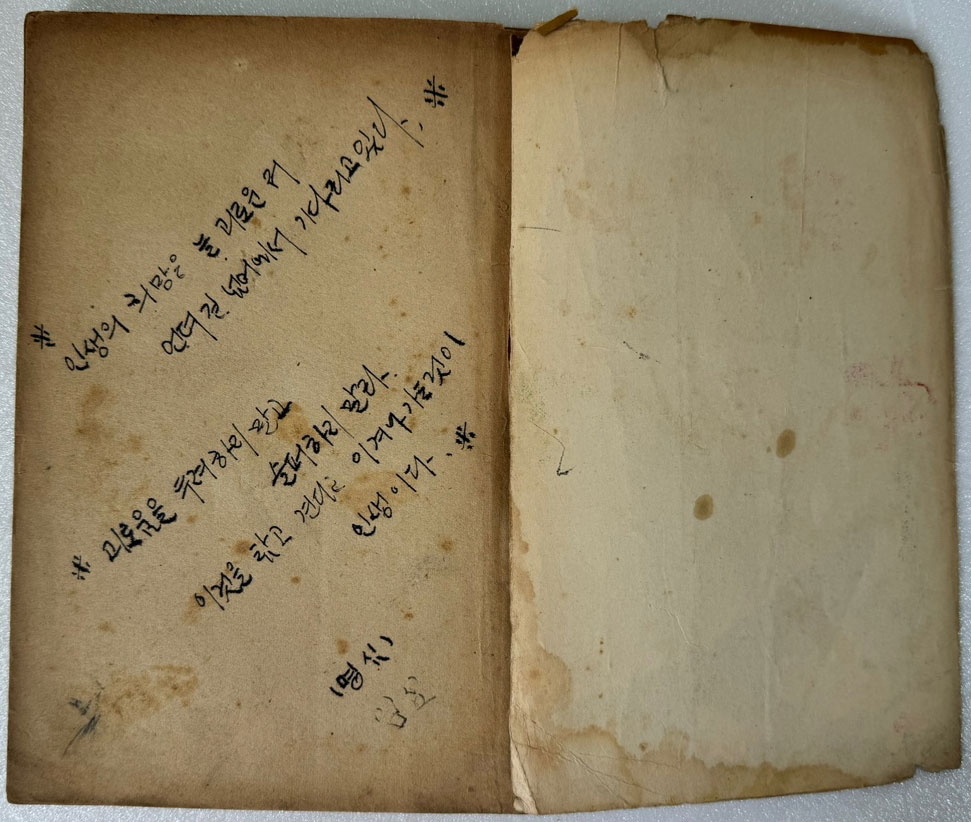 ※ 인생의 희망은 늘 괴로운 저
언덕길 넘어에서 기다리고있다. ※
※ 괴로움을 두려하지 말고
슬퍼하지 말라.
이것을 참고 견디고 이겨나가는것이
인생이다. ※